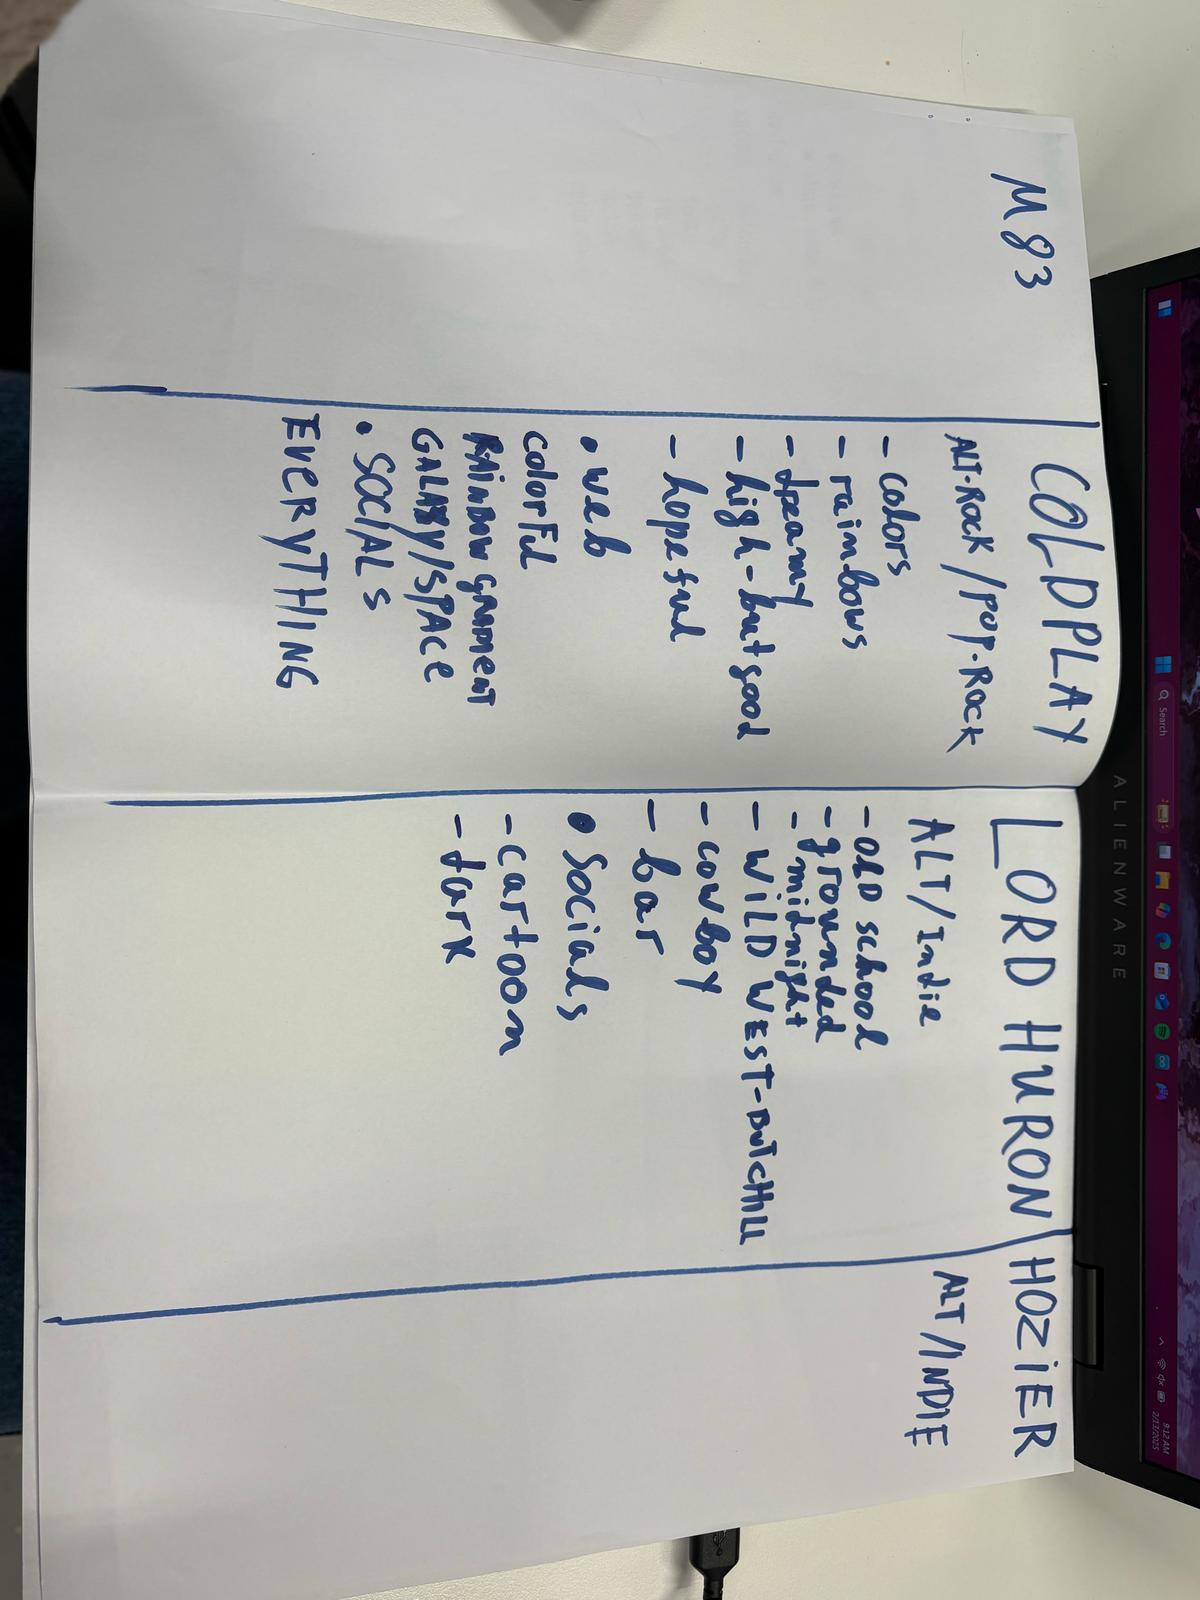 M83
COLDPLAY
ALT-ROCK/POP-ROCK
- colors
- rainbows
- dreamy
- high-but good
- hopeful
• web
colorFul
RAINBOW GRADIENT
GALAXY/SPACE
• SOCIALS
EVERYTHING
LORD HURON
ALT/Indie
- OLD school
- grounded
- midnight
- WILD WEST-DUTCHILL
- cowboy
- bar
• Socials
- cartoon
- dark
HOZIER
ALT/INDIE
ALIENWARE
Search
9:12 AM
2/13/2025